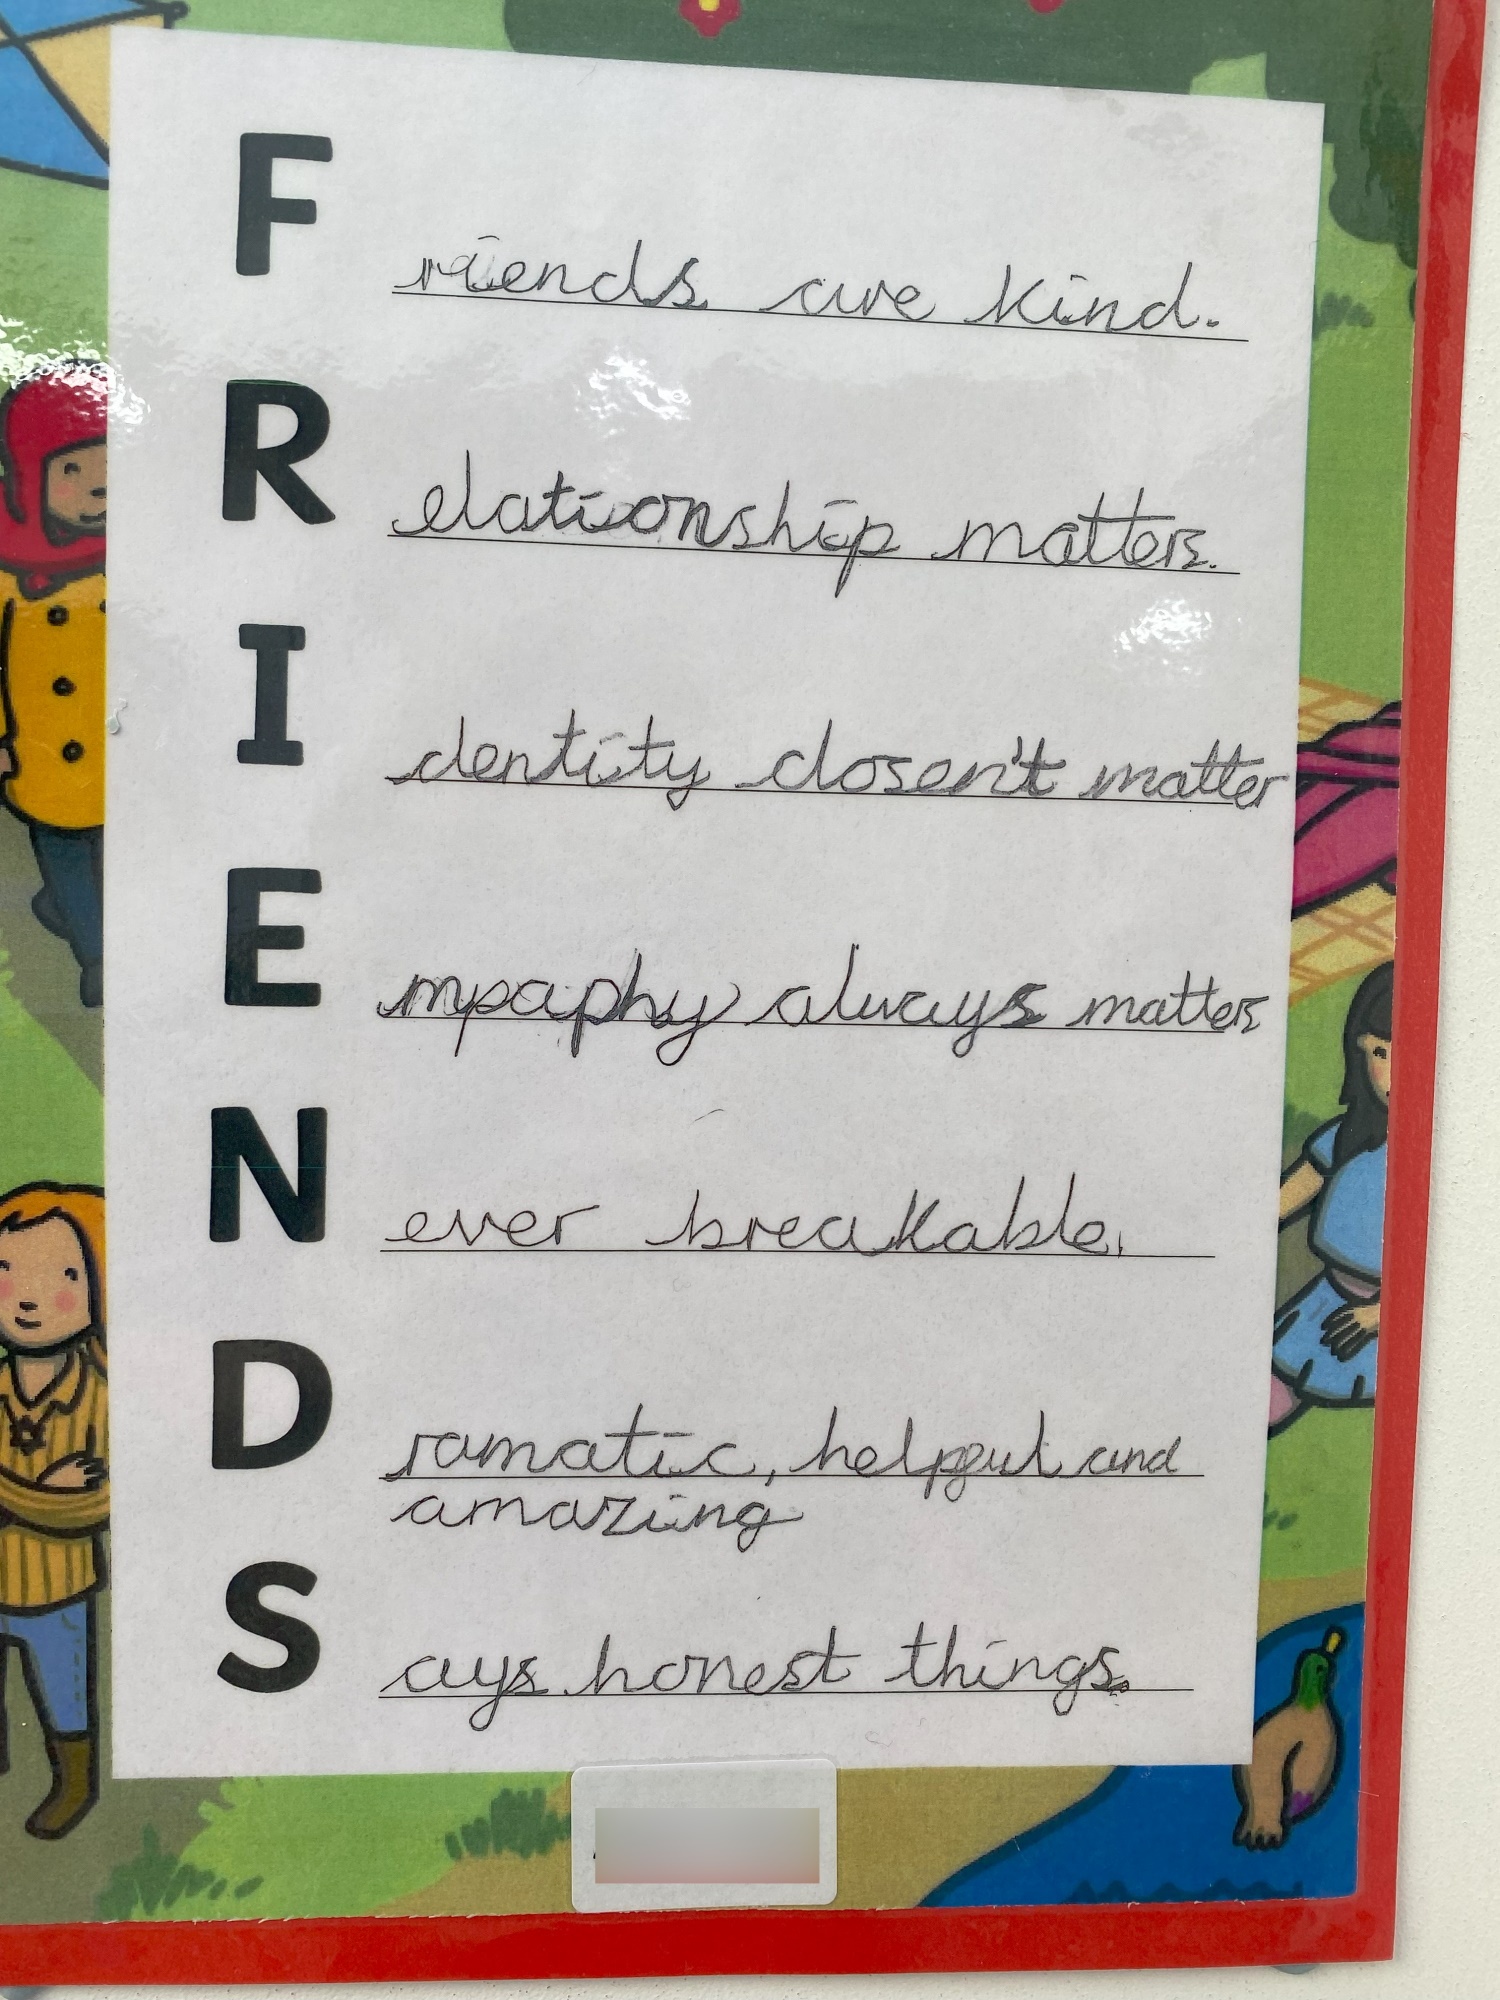 Friends are kind.
Relationship matters.
Identity dosen't matter
Empaphy always matters
Never breakable.
Dramatic, helpful and
amazing
Says honest things.